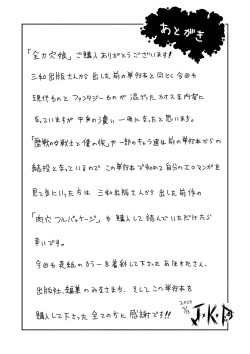 あとがき
「全力穴娘」ご購入ありがとうございます!
三和出版さんから出した前の単行本と同じく今回も
現代ものとファンタジーものが混ざったカオスな内容に
なっていますが中身の濃い一冊になったと思います。
「歴戦の女戦士と僕の嫁」や一部のキャラ達は前の単行本からの
続投となっているのでこの単行本で初めて自分のエロマンガを
見て気にいった方は三和出版さんから出した前作の
「肉穴フルパッケージ」も購入して読んでいただけたら
幸いです。
今回も表紙のカラーを着彩して下さったあほすたさん、
出版社、編集のみなさま方、そしてこの単行本を
購入して下さった全ての方に感謝です!!
2023
J.K.P